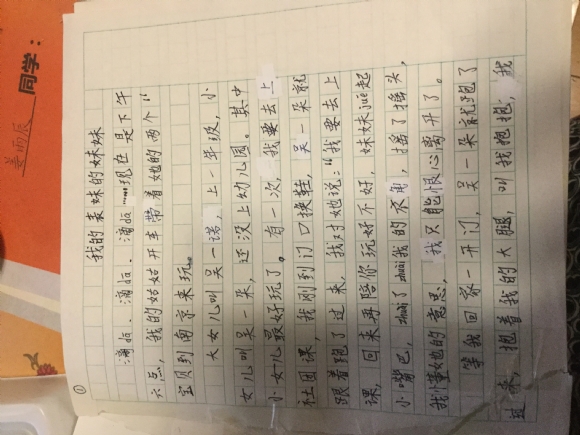 姜雨辰 同学:
①
我的表妹的妹妹
滴姑、滴姑、滴姑……现在是下午
六点,我的姑姑开车带着她的两个“
宝贝到南京来玩。
大女儿叫吴一诺,上一年级,小
女儿叫吴一朵,还没上幼儿园。其中
小女儿最好玩了。有一次,我要去上
社团课,我刚到门口换鞋,吴一朵就
跟着跑了过来,我对她说:“我要去上
课,回来再陪你玩好不好,妹妹juē起
小嘴巴,zhuāi了zhuāi我的衣角,摇了摇头,
我懂她的意思,我只能恨心离开了。
等我回家一开门,吴一朵就跑了
过来,抱着我的大腿,叫我抱抱,我